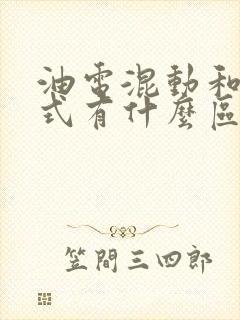 油電混動和
式有什麼區
笠間三四郎